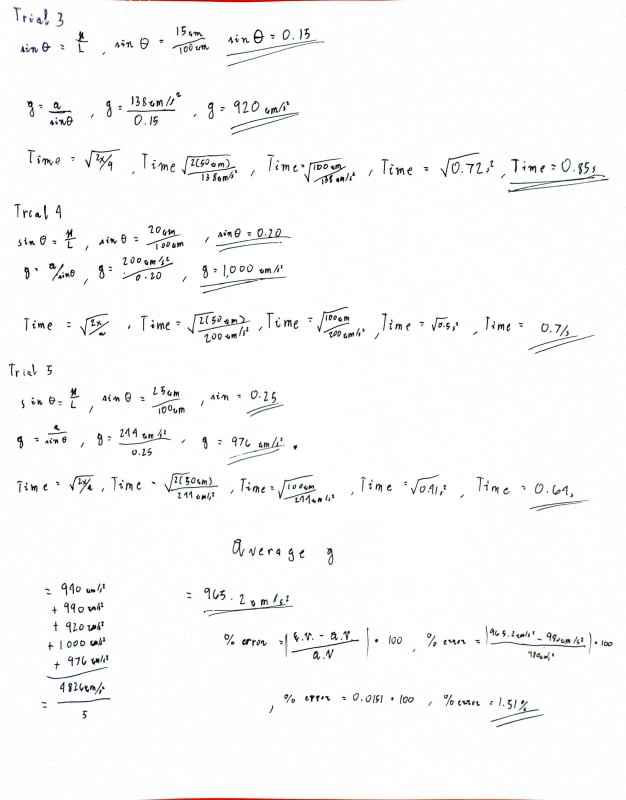 Trial 3
sin θ = H/L , sin θ = 15cm/100cm sin θ = 0.15
g = a/sinθ , g = 138cm/s²/0.15 , g = 920 cm/s²
Time = √2x/a , Time √2(50cm)/138cm/s² , Time = √100cm/138cm/s² , Time = √0.72s² , Time = 0.85s
Trial 4
sin θ = H/L , sin θ = 20cm/100cm , sin θ = 0.20
g = a/sinθ , g = 200cm/s²/0.20 , g = 1,000 cm/s²
Time = √2x/a , Time = √2(50cm)/200cm/s² , Time = √100cm/200cm/s² , Time = √0.5s² , Time = 0.71s
Trial 5
sin θ = H/L , sin θ = 25cm/100cm , sin = 0.25
g = a/sinθ , g = 244cm/s²/0.25 , g = 976 cm/s² .
Time = √2x/a , Time = √2(50cm)/244cm/s² , Time = √100cm/244cm/s² , Time = √0.41s² , Time = 0.64s
Average g
= 940 cm/s²
+ 990 cm/s²
+ 920 cm/s²
+ 1000 cm/s²
+ 976 cm/s²
= 4826cm/s²/5
= 965.2cm/s²
% error = |E.V. - A.V/A.V| • 100 , % error = |965.2cm/s² - 980cm/s²/980cm/s²| • 100
, % error = 0.0151 • 100 , % error = 1.51%